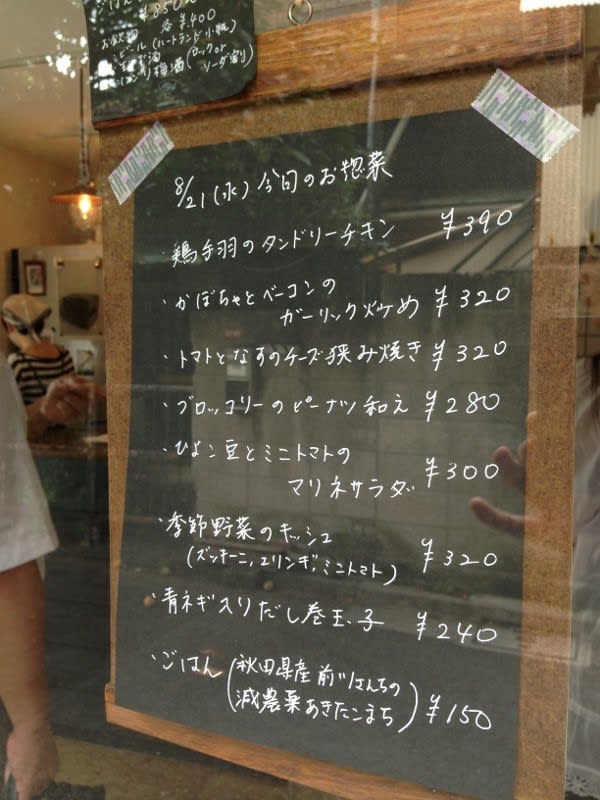 ごはん
¥850
各¥400
・お飲物
ビール(ハートランド小瓶)
梅酒(ロックor
ソーダ割り)
8/21(水)今日のお惣菜
・鶏手羽のタンドリーチキン ¥390
・かぼちゃとベーコンの
ガーリック炒め ¥320
・トマトとなすのチーズ挟み焼き ¥320
・ブロッコリーのピーナッツ和え ¥280
・ひよこ豆とミニトマトの
マリネサラダ ¥300
・季節野菜のキッシュ
(ズッキーニ,エリンギ,ミニトマト) ¥320
・青ネギ入りだし巻玉子 ¥240
・ごはん(秋田県産
減農薬あきたこまち) ¥150